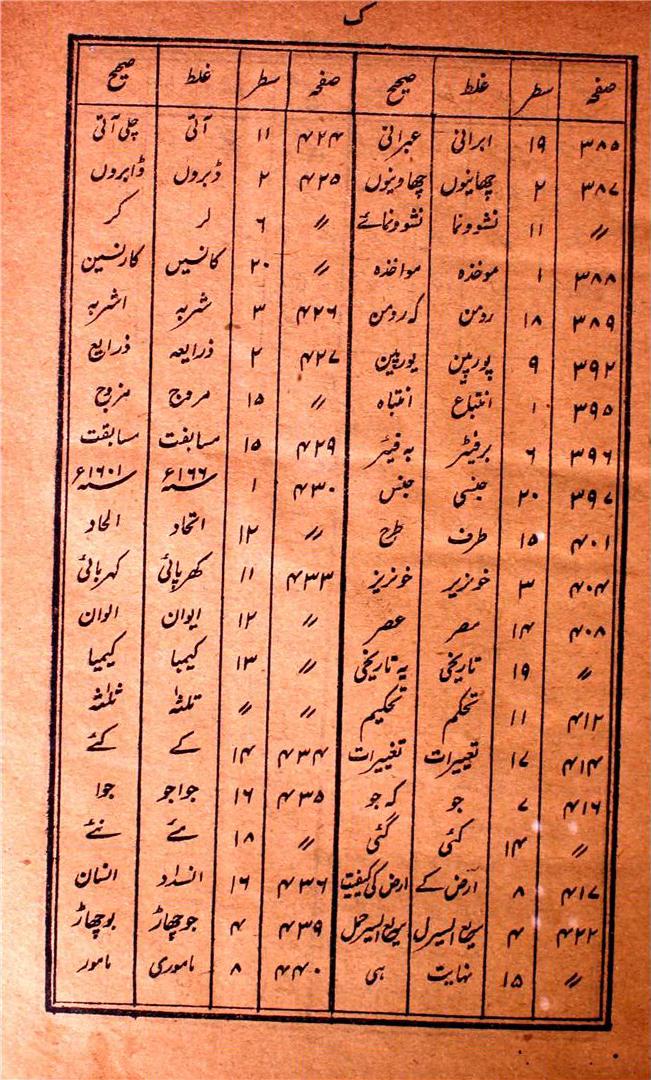 ک
صفحہ سطر غلط صحیح صفحہ سطر غلط صحیح
۳۸۵ ۱۹ ابرانی عبرانی ۴۲۴ ۱۱ آتی چلی آتی
۳۸۷ ۲ چھاینوں چھاونیوں ۴۲۵ ۲ ڈبروں ڈابروں
〃 ۱۱ نشوونما نشوونمائے 〃 ۶ لر کر
۳۸۸ ۱ موخذہ مواخذہ 〃 ۲۰ کانسیں کارنسین
۳۸۹ ۱۸ رومن کہ رومن ۴۲۶ ۳ شربہ اشربہ
۳۹۲ ۹ پورپین یورپین ۴۲۷ ۲ ذرایعہ ذرایع
۳۹۵ ۱۰ انتباع انتباہ 〃 ۱۵ مروج مزوج
۳۹۶ ۶ برفیٹر بہ فیٹر ۴۲۹ ۱۵ مسابفت مسابقت
۳۹۷ ۲۰ جنسی جنس ۴۳۰ ۱ سنہ ۱۶۶ء سنہ ۱۶۰۱ء
۴۰۱ ۱۵ طرف طرح 〃 ۱۲ اتحاد الحاد
۴۰۴ ۳ خونریر خونریز ۴۳۳ ۱۱ کھربائی کہربائی
۴۰۸ ۱۴ مصر عصر 〃 ۱۲ ایوان الوان
〃 ۱۹ تاریخی یہ تاریخی 〃 ۱۳ کیمبا کیمیا
۴۱۲ ۱۱ تحکم تحکیم 〃 〃 تلثہ ثلثہ
۴۱۴ ۱۷ تعییرات تغییرات ۴۳۴ ۱۴ کے کئے
۴۱۶ ۷ جو کہ جو ۴۳۵ ۱۶ جواجو جوا
〃 ۱۴ کئی گئی 〃 ۱۸ مئے نئے
۴۱۷ ۸ ارض کے ارض کی کیفیت ۴۳۶ ۱۶ انسداد انسان
۴۲۲ ۴ سریع السیرل سریع السیر حمل ۴۳۹ ۴ جوچھاڑ بوچھاڑ
〃 ۱۵ نہایت ہی ۴۴۰ ۸ ماموری مامور